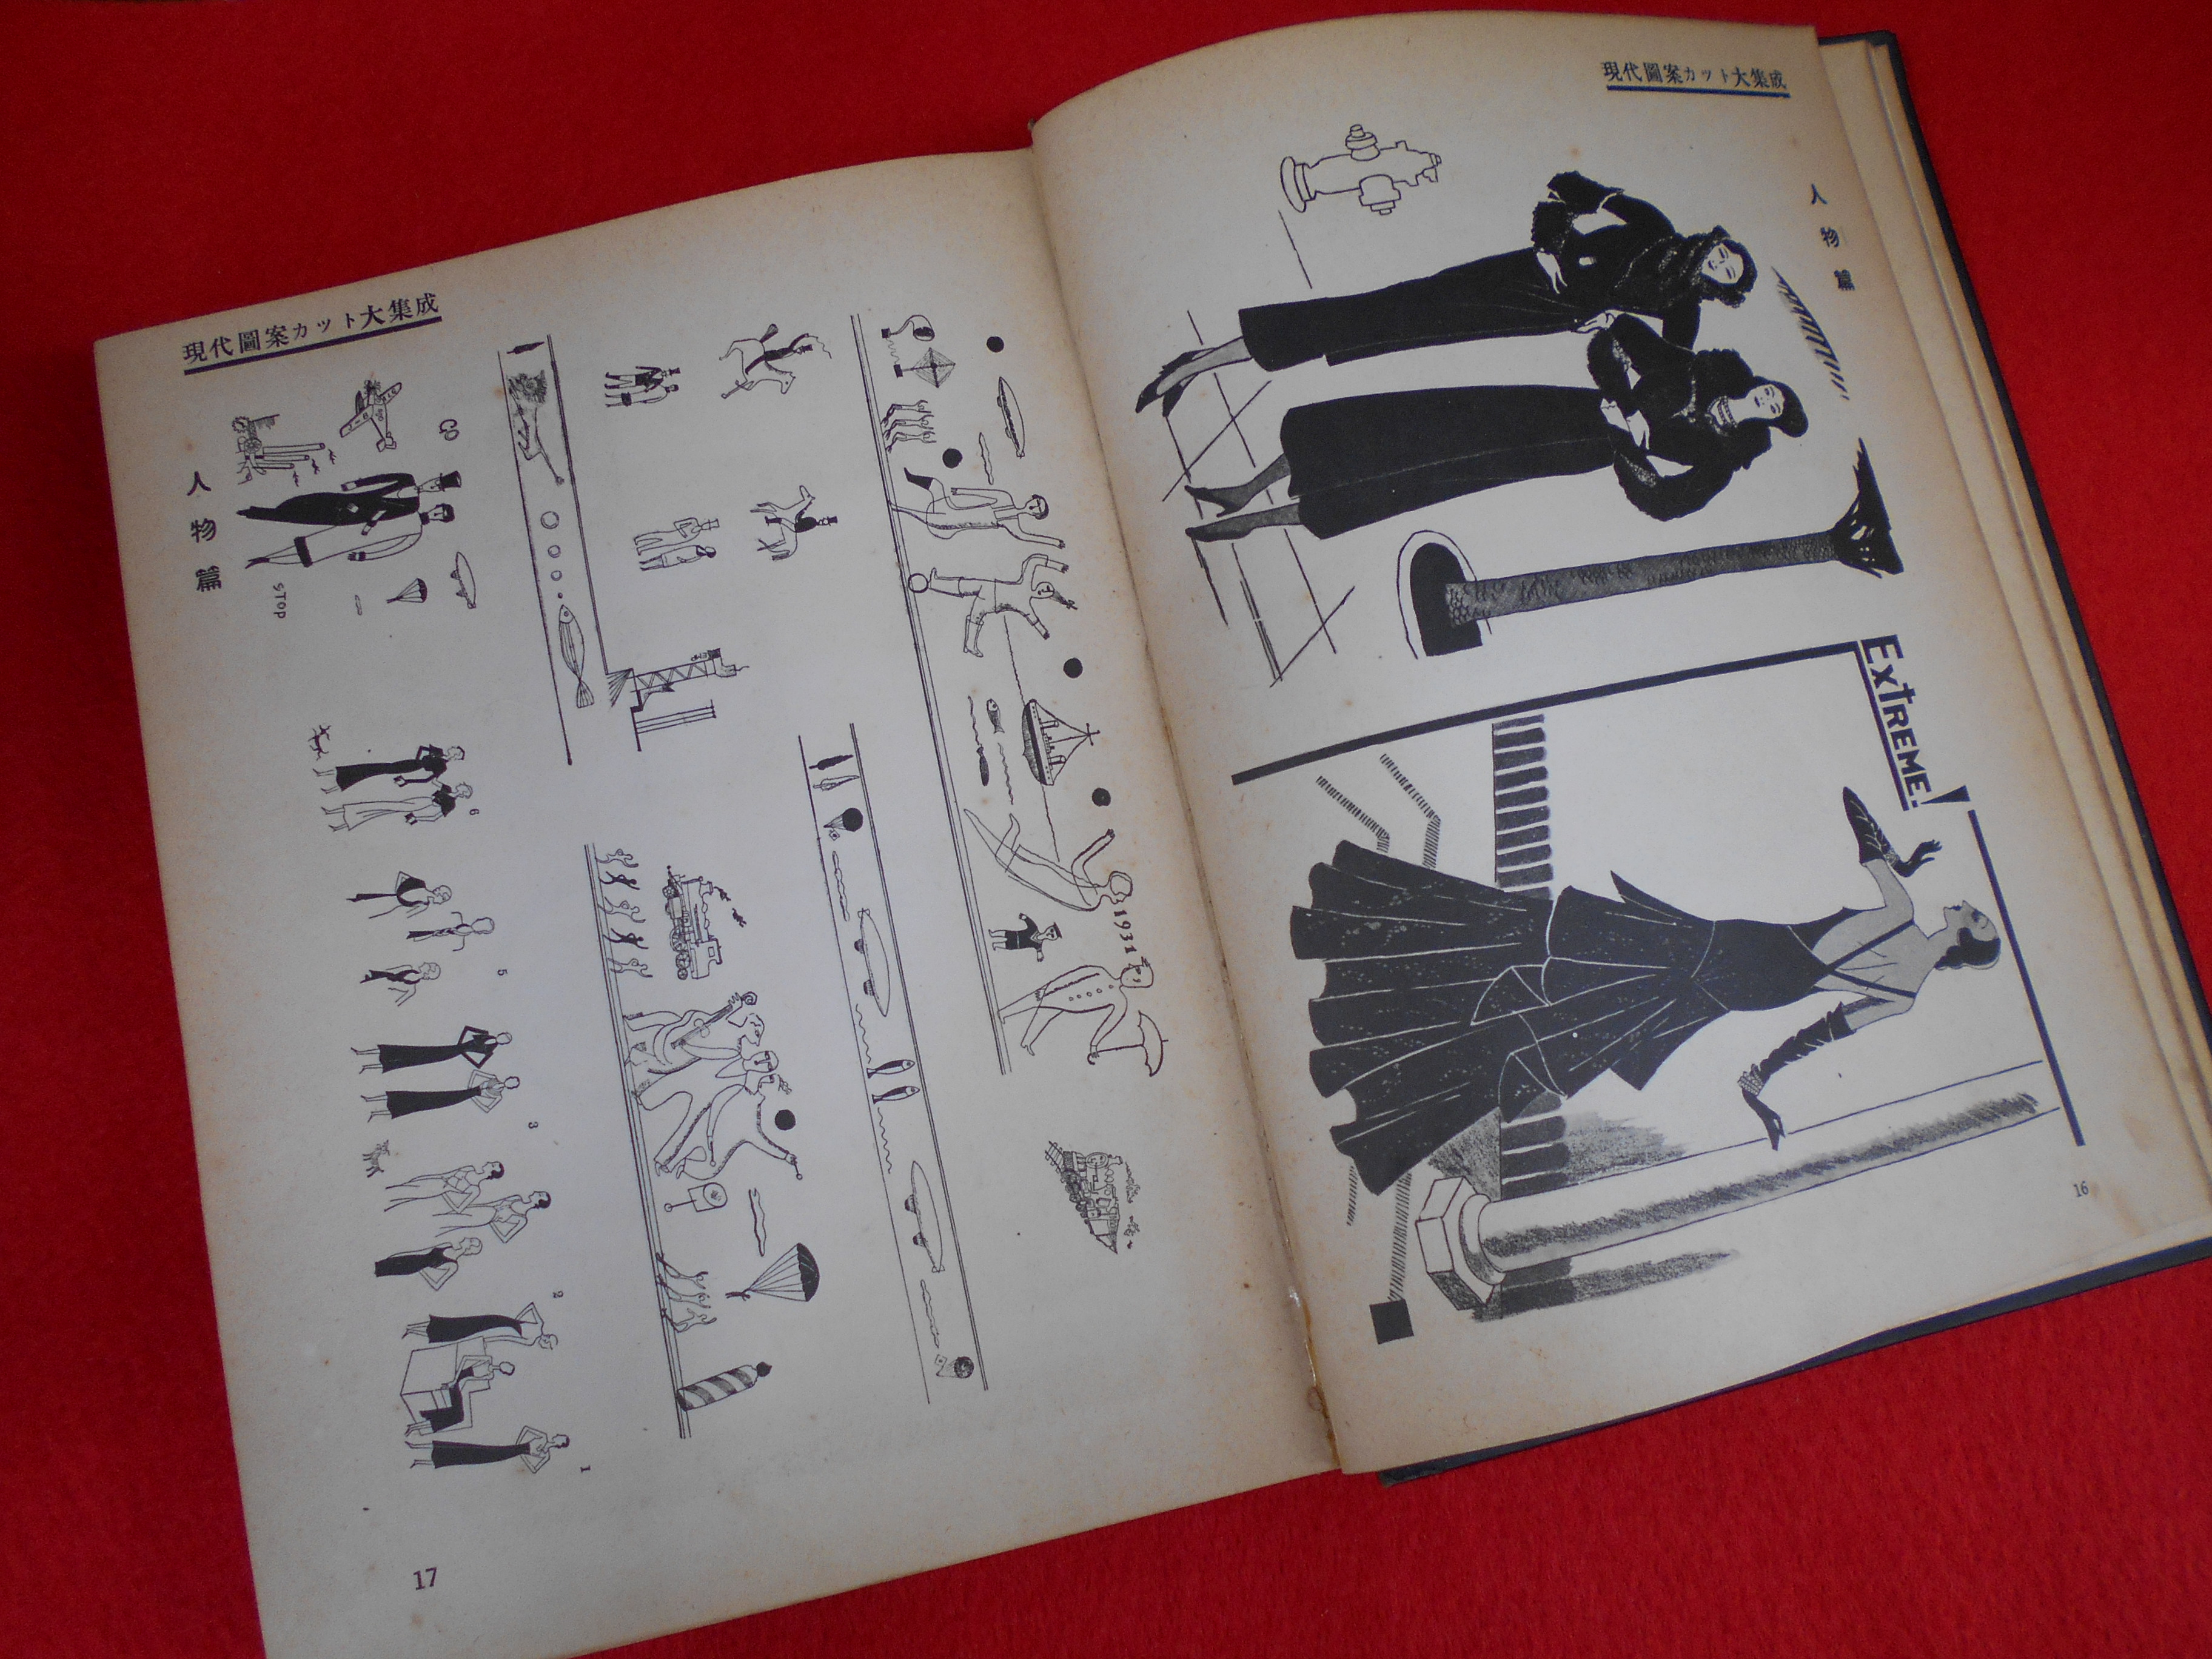 現代圖案カット大集成
人物篇
EXTREME!
16
現代圖案カット大集成
人物篇
GO
STOP
1931
6
5
3
2
1
17